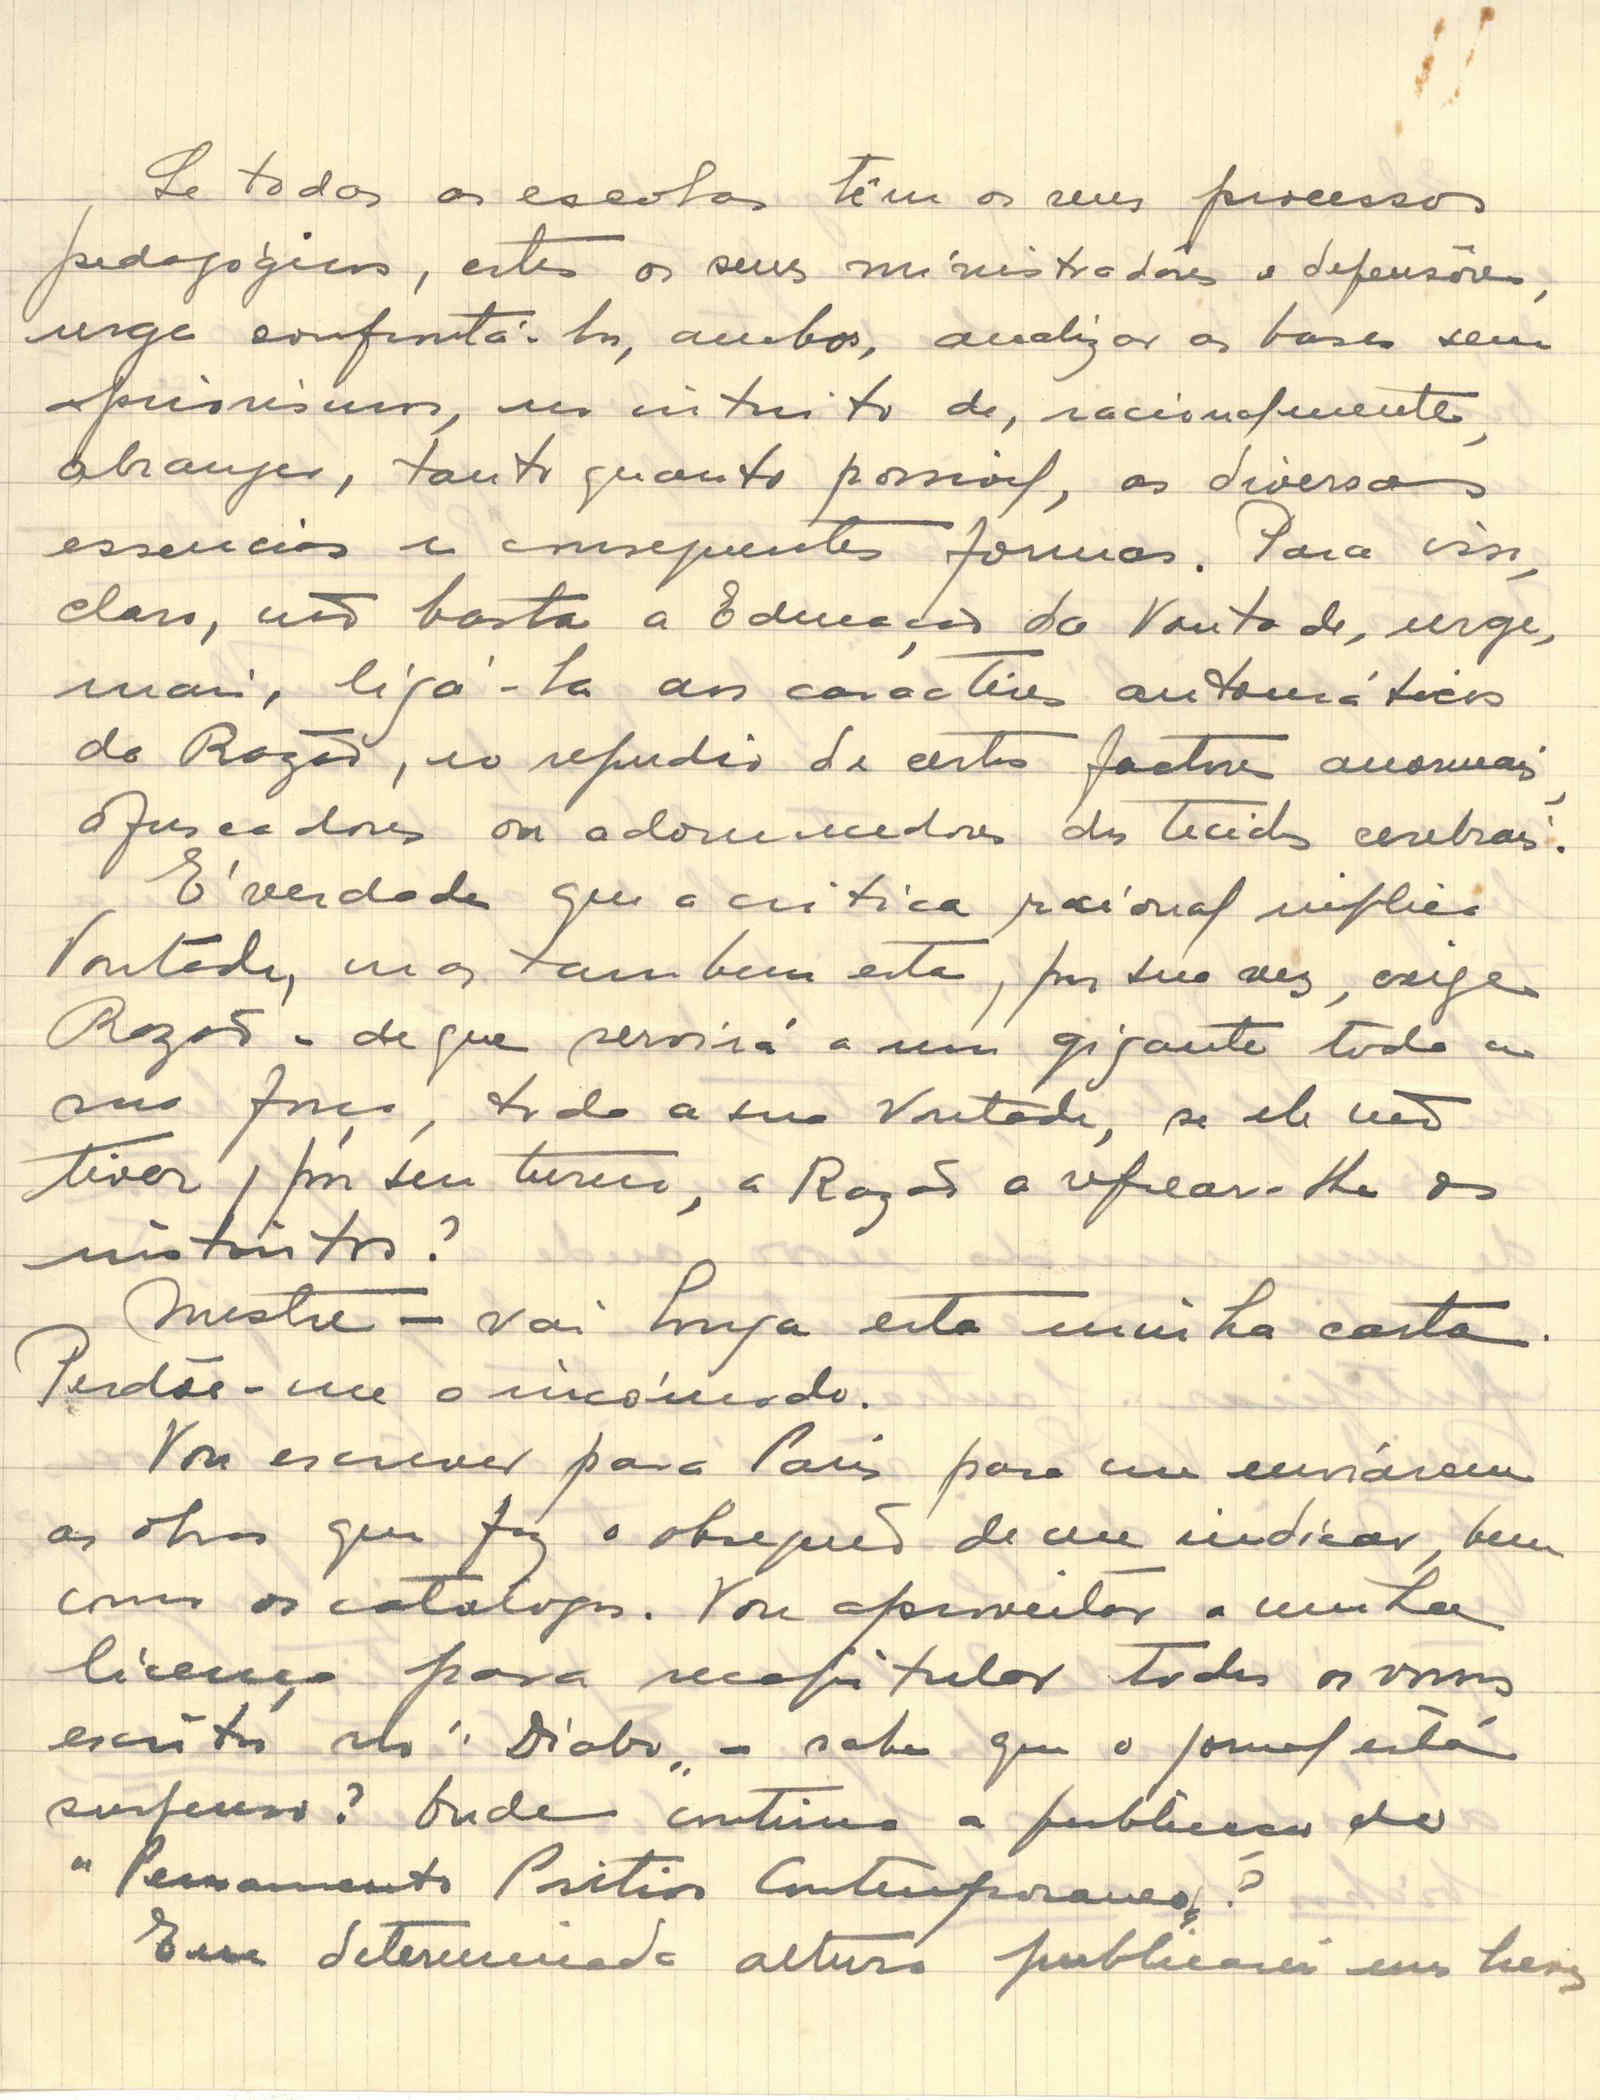 Se todas as escolas têm os seus processos
pedagógicos, estes os seus ministradôres e defensôres,
urge confrontá-los, ambos, analizar as bases sem
apriorismos, no intuito de, racionalmente,
abranger, tanto quanto possivel, as diversas
essencias e consequentes formas. Para isso,
claro, não basta a Educação da Vontade, urge,
mais, ligá-la aos carácteres automáticos
da Razão, no repudio de certos factores anormais,
ofuscadores ou adormecedores dos tecidos cerebrais.
É verdade que a critica racional implica
Vontade, mas tambem esta, por sua vez, exige
Razão - de que servirá a um gigante toda a
sua força, toda a sua Vontade, se ele não
tiver, por seu turno, a Razão a refrear-lhe os
instintos?
Mestre - vai longa esta minha carta.
Perdôe-me o incómodo.
Vou escrever para Paris para me enviárem
as obras que faz o obsequio de me indicar, bem
como os catalogos. Vou aproveitar a minha
licença para recapitular todos os vossos
escritos no "Diabo" - sabe que o jornal está
suspenso? Onde continua a publicação do
"Pensamento Positivo Contemporaneo"?
Em determinada altura publicarei uns